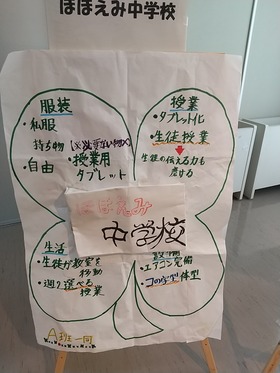 ほほえみ中学校
服装
・私服
持ち物
・自由
・授業用
タブレット
授業
・タブレット化
・生徒授業
生徒の伝える力も
ほほえみ
中学校
生活
・生徒が教室を
移動
・週1選べる
授業
設備
・エアコン完備
・コの字型体型
A班一同